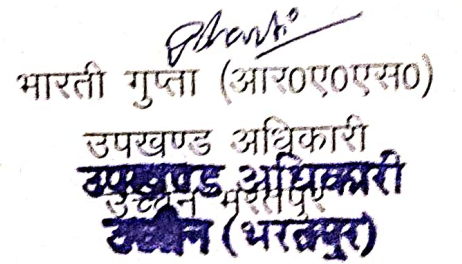 Bharti
भारती गुप्ता (आर०ए०एस०)
उपखण्ड अधिकारी
उपखण्ड अधिकारी
उच्चैन भरतपुर
उच्चैन (भरतपुर)